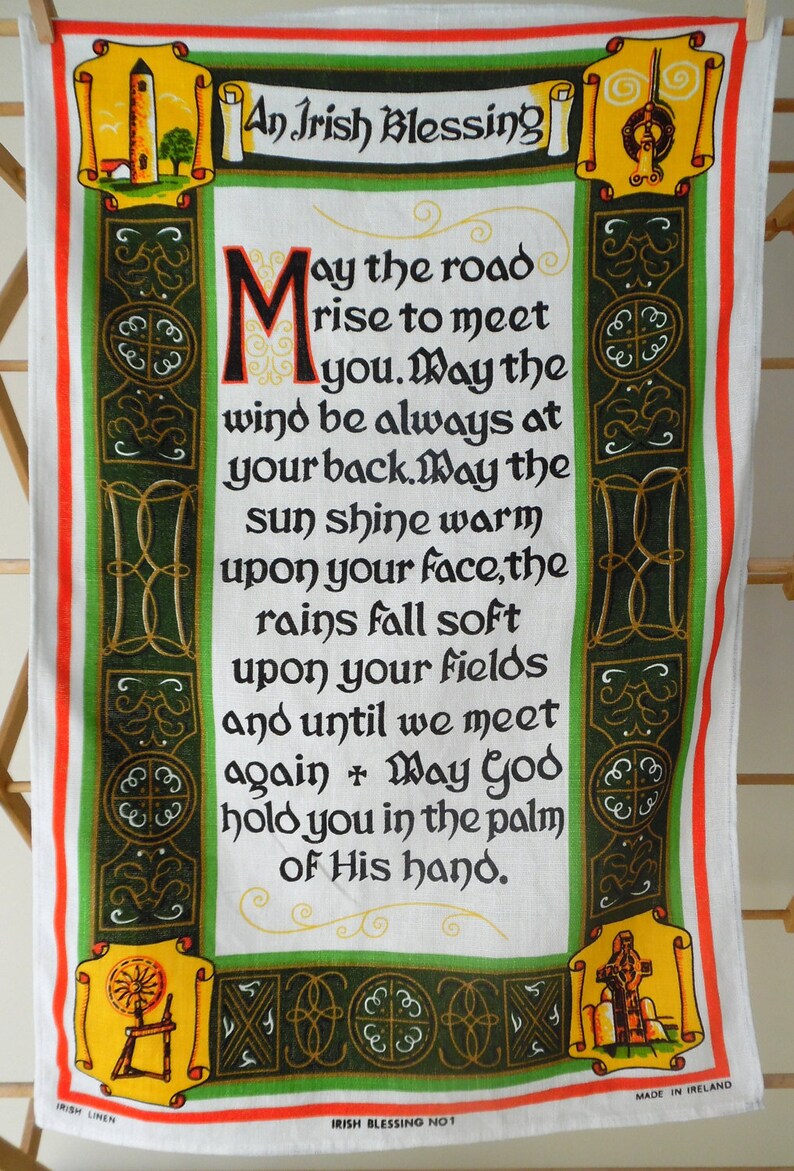 An Irish Blessing
May the road
rise to meet
you. May the
wind be always at
your back. May the
sun shine warm
upon your face, the
rains fall soft
upon your fields
and until we meet
again + May God
hold you in the palm
of His hand.
IRISH LINEN
IRISH BLESSING NO 1
MADE IN IRELAND